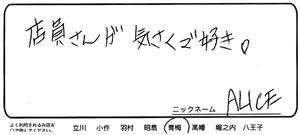 店員さんが 気さくで好き。
ニックネーム ALICE
よく利用されるお店を
○で囲んでください。 立川 小作 羽村 昭島 青梅 高幡 堀之内 八王子